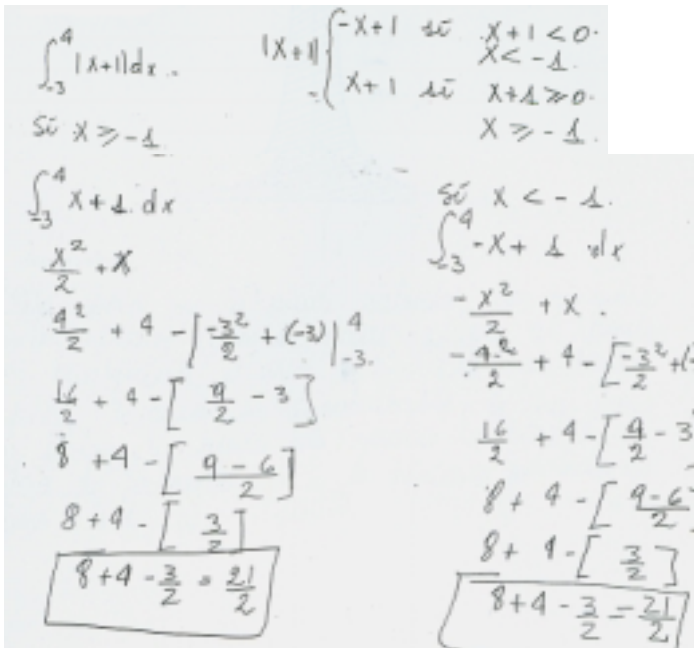 ∫_{-3}^{4} |x+1|dx.
|x+1| { -x+1 si x+1 < 0.
x < -1.
x+1 si x+1 ≥ 0.
x ≥ -1.
Si x ≥ -1
∫_{-3}^{4} x+1. dx
x²/2 + x
4²/2 + 4 - [-3²/2 + (-3)|_{-3}^{4}.
16/2 + 4 - [9/2 - 3]
8 + 4 - [(9-6)/2]
8+4 - [3/2]
8+4 - 3/2 = 21/2
Si x < -1.
∫_{-3}^{4} -x + 1 dx
-x²/2 + x.
-4²/2 + 4 - [-3²/2 +(-
16/2 + 4 - [9/2 - 3
8 + 4 - [(9-6)/2]
8 + 4 - [3/2]
8+4 - 3/2 = 21/2